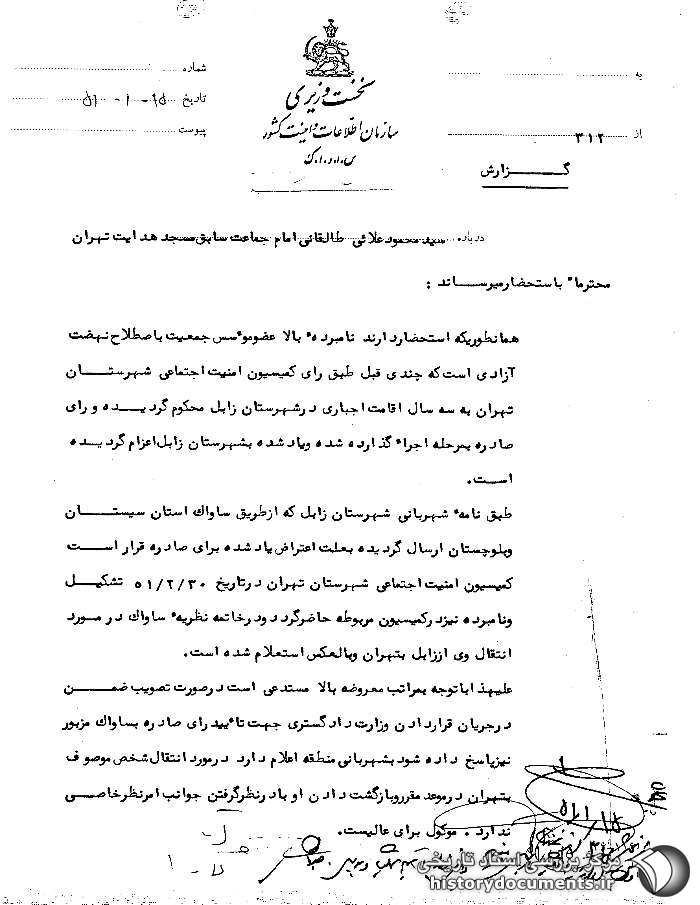 نخست وزیری
سازمان اطلاعات و امنیت کشور
س.ا.و.ا.ک
به
از ۳۱۲
شماره
تاریخ ۱۵-۱-۵۱
پیوست
گزارش
درباره سید محمود علائی طالقانی امام جماعت سابق مسجد هدایت تهران
محترماً باستحضار میرساند :
همانطوریکه استحضار دارند نامبرده بالا عضو موسس جمعیت باصطلاح نهضت
آزادی است که چندی قبل طبق رای کمیسیون امنیت اجتماعی شهرستان
تهران به سه سال اقامت اجباری در شهرستان زابل محکوم گردیده و رای
صادره بمرحله اجراء گذارده شده و یاد شده بشهرستان زابل اعزام گردیده
است.
طبق نامه شهربانی شهرستان زابل که از طریق ساواک استان سیستان
و بلوچستان ارسال گردیده بعلت اعتراض یاد شده برای صادره قرار است
کمیسیون امنیت اجتماعی شهرستان تهران در تاریخ ۵۱/۲/۳۰ تشکیل
و نامبرده نیز در کمیسیون مربوطه حاضر گردد در خاتمه نظریه ساواک در مورد
انتقال وی از زابل بتهران و بالعکس استعلام شده است.
علیهذا با توجه بمراتب معروضه بالا مستدعی است در صورت تصویب ضمن
در جریان قرار دادن وزارت دادگستری جهت تایید رای صادره بساواک مزبور
نیز پاسخ داده شود بشهربانی منطقه اعلام دارد در مورد انتقال شخص موصوف
بتهران در موعد مقرر و بازگشت دادن او با در نظر گرفتن جوانب امر نظر خاصی
ندارد . موکول برای عالیست.
مرکز بررسی اسناد تاریخی
historydocuments.ir